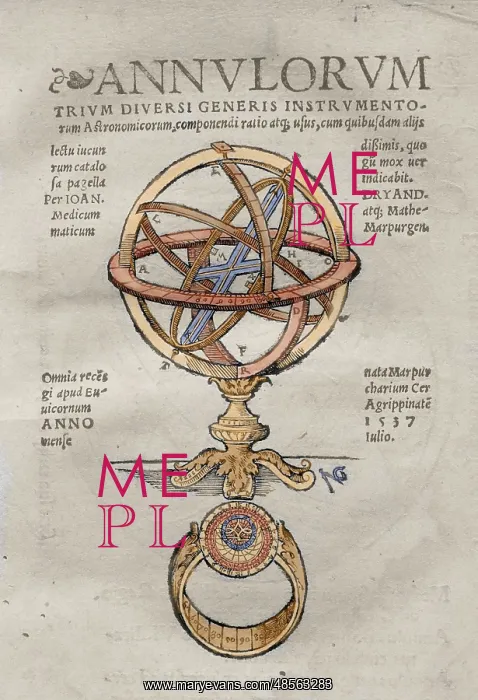 ANNVLORVM
TRIVM DIVERSI GENERIS INSTRVMENTO-
rum Astronomicorum, componendi ratio atq; usus, cum quibusdam alijs
lectu iucun
rum catalo
Per IOAN.
Medicum
maticum
dissimis, quo
gū mox uer
indicabit.
DRYAND.
atq; Mathe-
Marpurgen.
ME
PL
A
C
H
O
D
F
R
Omnia recēs
gi apud Eu-
uicornum
ANNO
mense
nata Marpur
charium Cer
Agrippinatē
1 5 3 7
Iulio.
ME
PL
www.maryevans.com/48563283